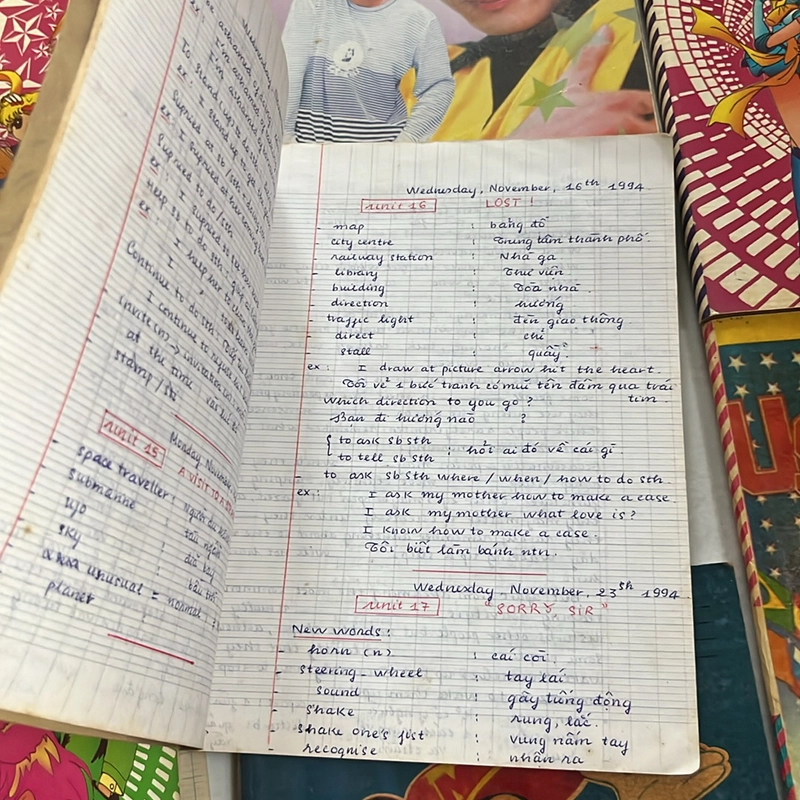 I'm ashamed of
To stand (up) to do sth
ex: I stand up to
Surprised at sb/sth
ex: I surprised at her
Surprised to do sth
ex: I surprised to see her
Help sb to do sth
ex: I help her to clean
Continue to do sth
I continue to
invite (v) → invitation (n)
at the time
stamp / stu
Monday November
unit 15
A VISIT TO A
space traveller : người du
submarine : tàu ngầm
ufo : đĩa bay
sky : bầu trời
unusual = normal
planet
Wednesday, November, 16th 1994.
unit 16 LOST !
- map : bảng đồ
- city centre : Trung tâm thành phố.
- railway station : Nhà ga
- library : Thư viện
building : Tòa nhà.
direction : hướng
- traffic light : đèn giao thông
- direct : chỉ
- stall : quầy.
ex: I draw at picture arrow hit the heart.
Tôi vẽ 1 bức tranh có mũi tên đâm qua trái
tim.
Which direction to you go ?
Bạn đi hướng nào ?
{ to ask sb sth
to tell sb sth : hỏi ai đó về cái gì.
- to ask sb sth where / when / how to do sth.
ex: I ask my mother how to make a case.
I ask my mother what love is?
I know how to make a case.
Tôi biết làm bánh ntn.
Wednesday, November, 23th 1994.
unit 17 "SORRY SIR"
New words :
horn (n) : cái còi.
- steering-wheel : tay lái
sound : gây tiếng động
- shake : rung, lắc.
- shake one's fist : vung nắm tay
recognise : nhận ra